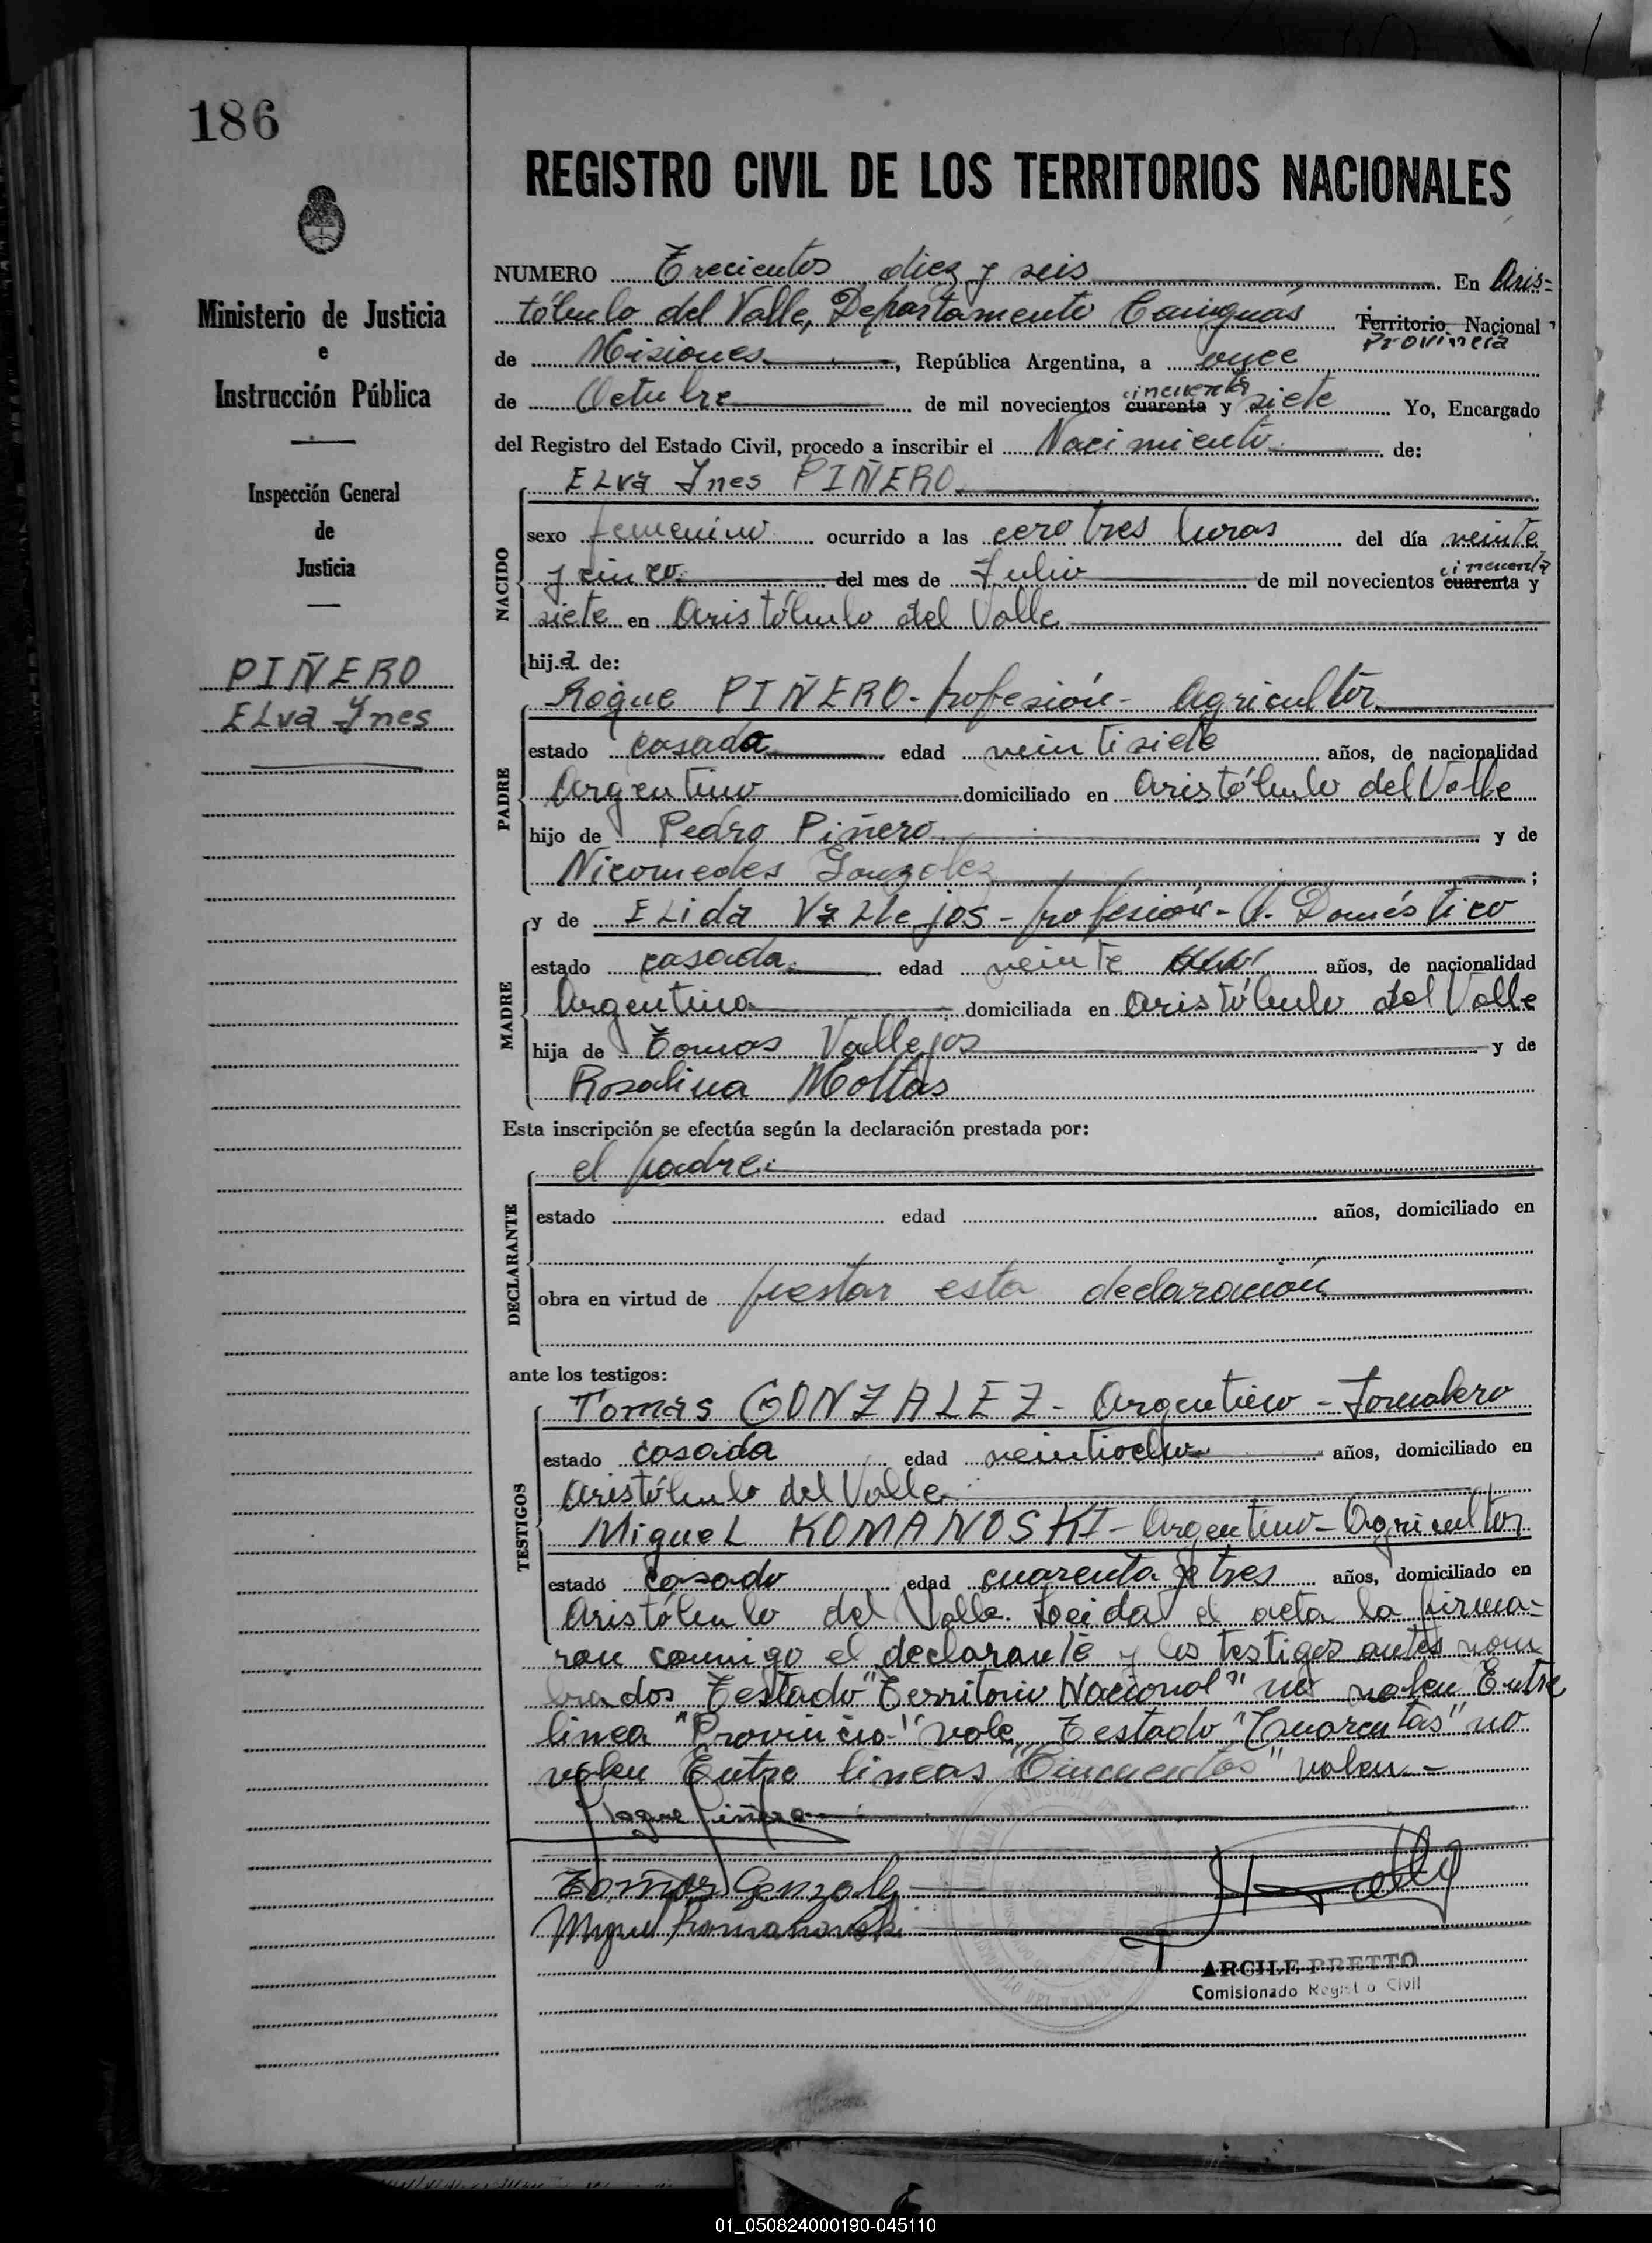 186
REGISTRO CIVIL DE LOS TERRITORIOS NACIONALES
Ministerio de Justicia
e
Instrucción Pública
Inspección General
de
Justicia
PIÑERO
ELva Ynes
NUMERO Trecientos diez y seis En Aris=
tóbulo del Valle, Departamento Cainguas Territorio Nacional
Provincia
de Misiones, República Argentina, a once
cincuenta
de Octubre de mil novecientos cuarenta y siete Yo, Encargado
del Registro del Estado Civil, procedo a inscribir el Nacimiento de:
ELva Ynes PIÑERO
NACIDO
sexo femenino ocurrido a las cero tres horas del día veinte
cincuenta
y cinco del mes de Julio de mil novecientos cuarenta y
siete en Aristóbulo del Valle
hija de:
Roque PIÑERO - profesión - Agricultor
PADRE
estado casada edad veintisiete años, de nacionalidad
Argentino domiciliado en Aristóbulo del Valle
hijo de Pedro Piñero y de
Nicomedes Gonzalez ;
y de ELida VaLLejos - profesión - Q. Doméstico
MADRE
estado casada edad veinte años, de nacionalidad
Argentina domiciliada en Aristóbulo del Valle
hija de Tomas Vallejos y de
Rosalina Mottas
Esta inscripción se efectúa según la declaración prestada por:
el padre
DECLARANTE
estado edad años, domiciliado en
obra en virtud de prestar esta declaración
ante los testigos:
Tomas GONZALEZ - Argentino - Jornalero
TESTIGOS
estado casada edad veintiocho años, domiciliado en
Aristóbulo del Valle
MigueL KOMANOSKI - Argentino - Agricultor
estado casado edad cuarenta y tres años, domiciliado en
Aristóbulo del Valle. Leida el acta la firma=
ron conmigo el declarante y los testigos antes nom
brados Testado "Territorio Nacional" no valen Entre
linea "Provincia" vale Testado "Cuarentas" no
valen Entre lineas "Cincuentas" valen -
Roque Piñero
Tomas Gonzalez
Miguel Romanowski
ARCILE PRETTO
Comisionado Registro Civil
01_050824000190-045110